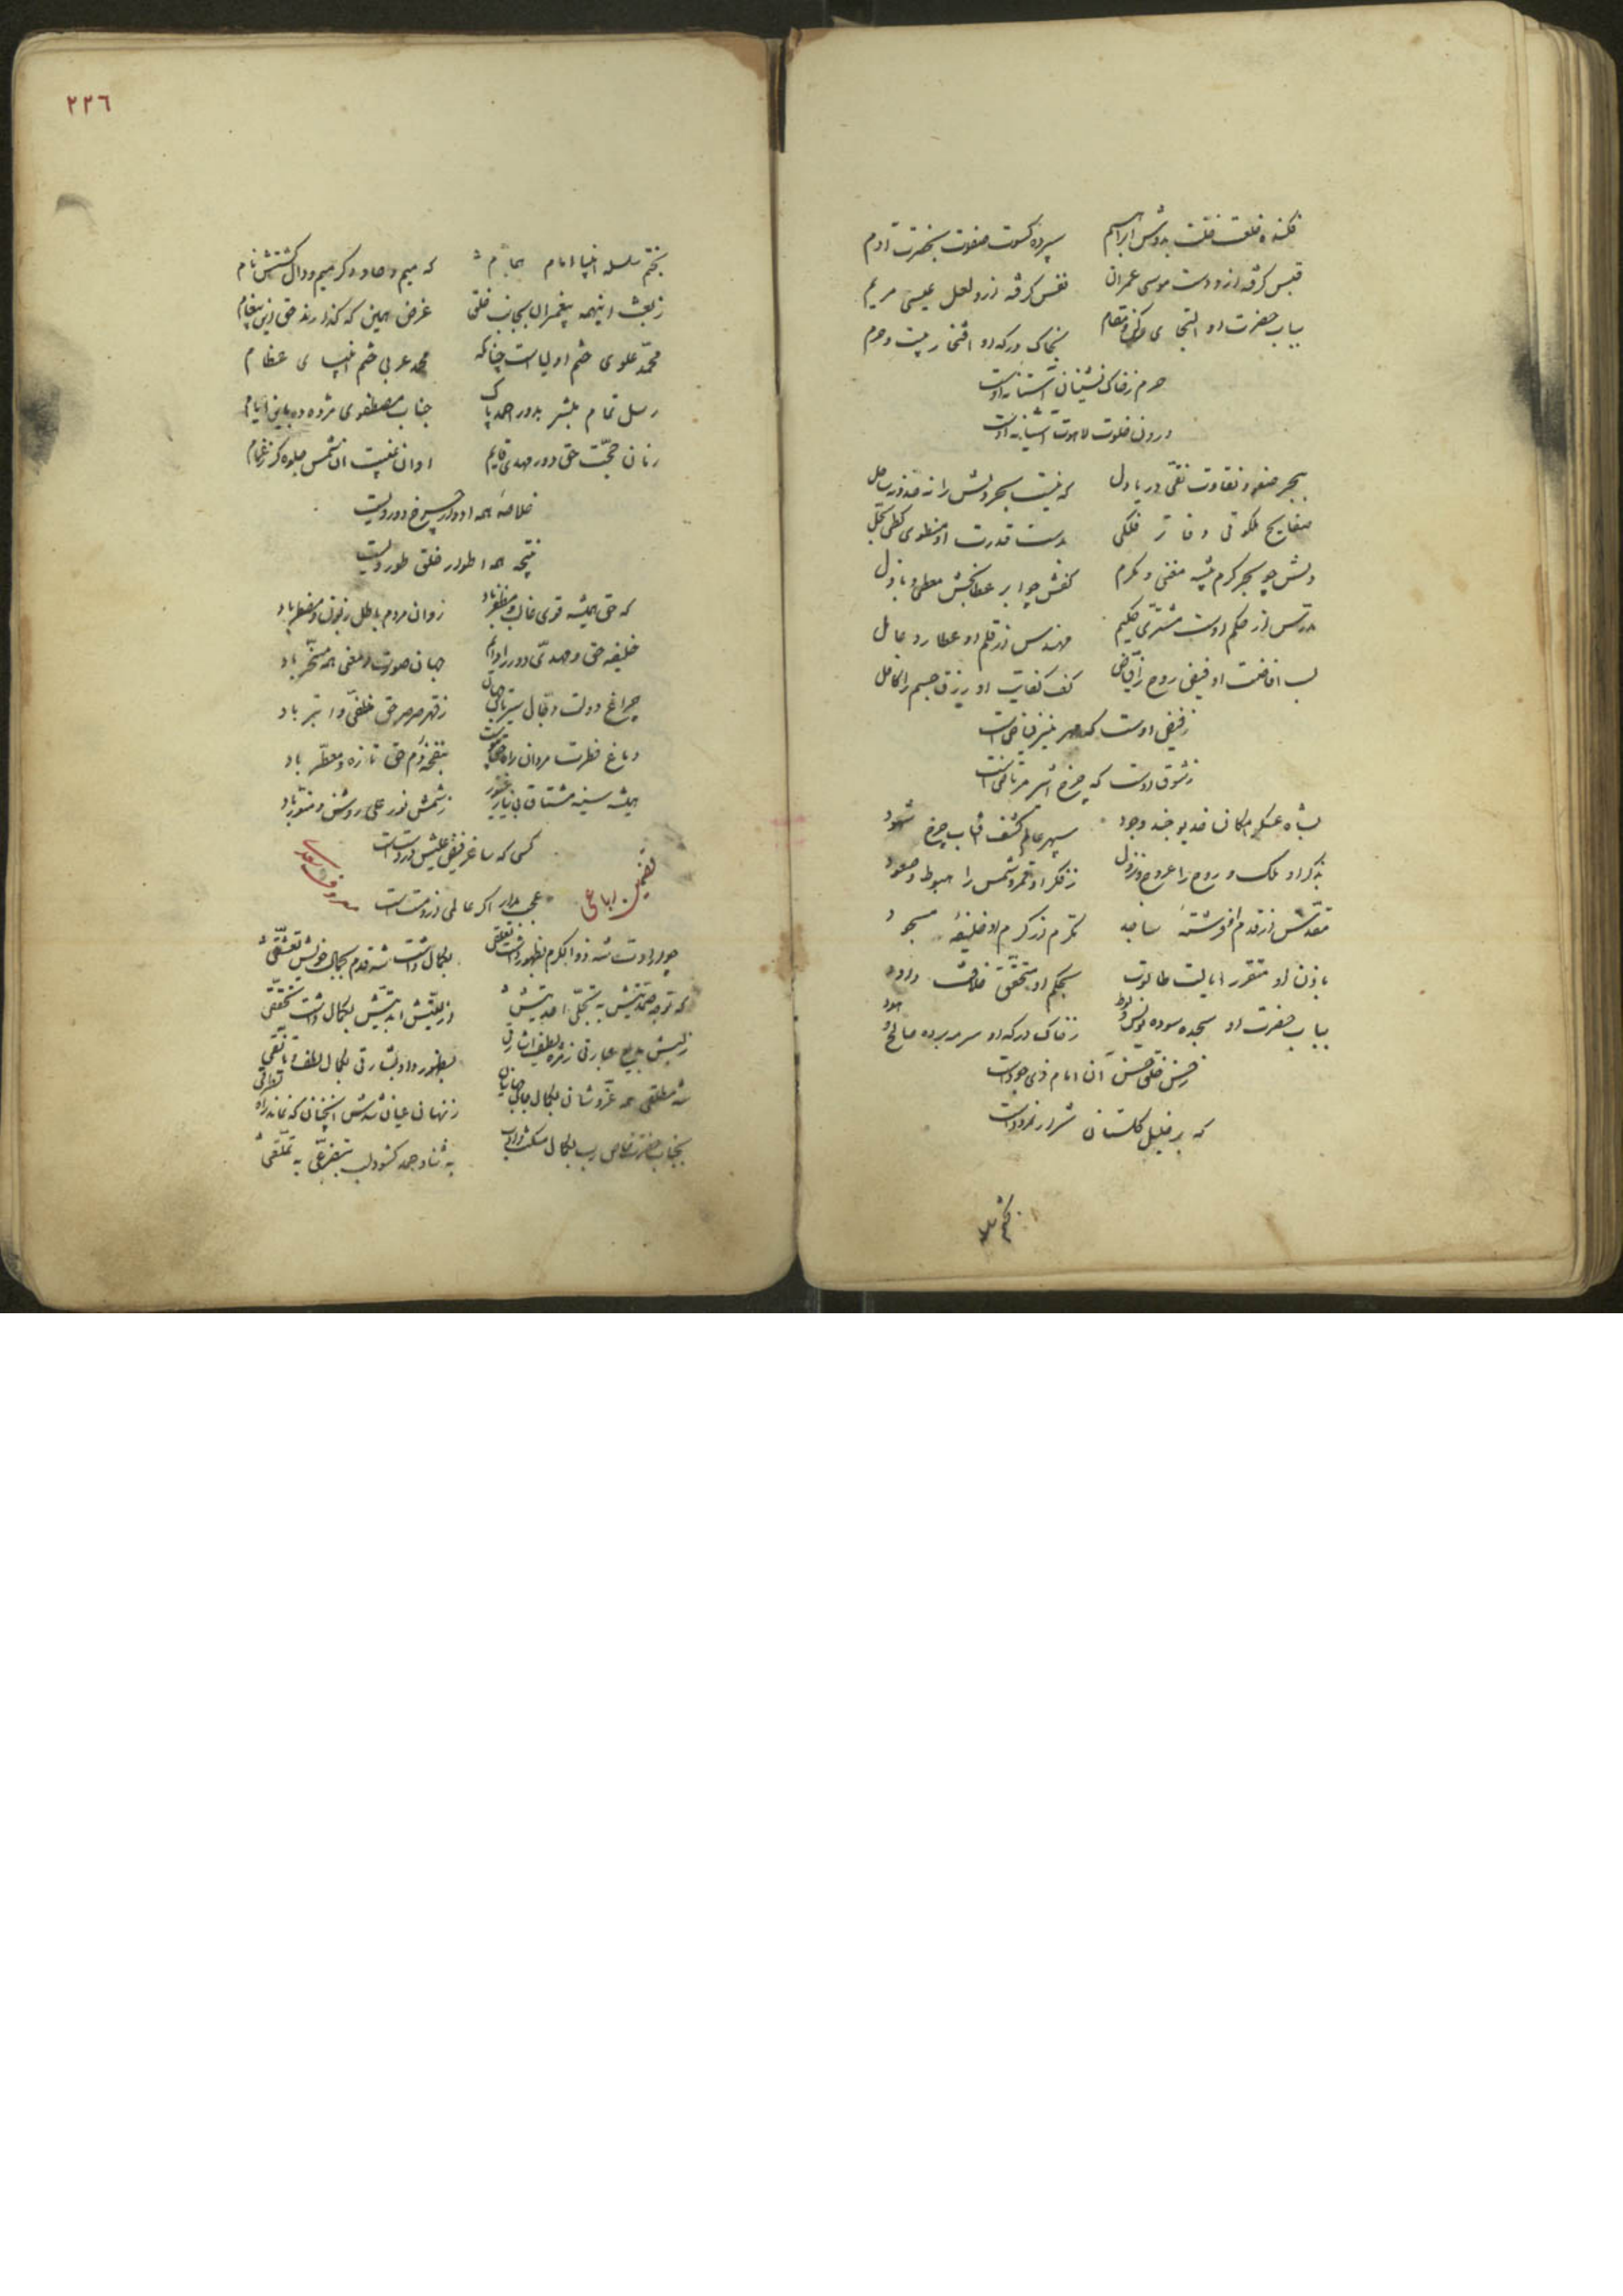 فکنده خلعت خلت بدوش ابراهیم سپرده کسوت صفوت بحضرت آدم
قبس گرفته ازو دست موسی عمران نفس گرفته ازو لعل عیسی مریم
بباب حضرت او التجای رکن و مقام بخاک درگه او افتخار بیت و حرم
حرم ز خاک نشینان آستانه اوست
درون خلوت لاهوت آشیانه اوست
ببحر صفوت و نقاوت نقی دریادل که نیست بحر دلش را نه حد و نه ساحل
مفاتیح ملکوتی دفاتر فلکی بدست قدرت او منطوی کطی سجل
دلش چو بحر کرم پیشه مغنی و مکرم کفش چو ابر عطابخش معطی و باذل
مدرس از حکم اوست مشتری حکیم مهندس از قلم او عطارد عامل
لب افاضت او فیض روح را فیاض کف کفایت او رزق جسم را کافل
ز فیض اوست که مهر منیر فیاض است
ز شوق اوست که چرخ اثیر مرتاض است
بشاه عسکر امکان خدیو جند وجود سپهر عالم کشف آفتاب چرخ شهود
بذکر او ملک و روح را عروج و نزول ز فکر او قمر و شمس را هبوط و صعود
مقدس از قدم او فرشته ساجد مکرم از کرم او خلیفه مسجود
باذن او متقرر ایالت طالوت بحکم او متحقق خلافت داود
بباب حضرت او سجده سوده یونس و لوط ز خاک درگه او سرمه برده صالح و هود
ز حسن خلق حسن آن امام ذی جودست
که بر خلیل گلستان شرار نمرودست
بختم سلسله
٢٢٦
بختم سلسله انبیا امام همام که میم و حا و دگر میم و دال گشتش نام
ز بعث اینهمه پیغمبران بجانب خلق غرض همین که گذارند حق این پیغام
محمد علوی ختم اولیاست چنانکه محمد عربی ختم انبیای عظام
رسل تمام مبشر بدور احمد پاک جناب مصطفوی مژده ده باین ایام
زمان حجت حق دور مهدی قایم اوان غیبت آن شمس جلوه گر ز غمام
خلاصه همه ادوار چرخ دور ویست
نتیجه همه اطوار خلق طور ویست
که حق همیشه قوی غالب و مظفر باد روان مردم باطل زبون و مضطر باد
خلیفه حق و مهدی دور را دایم جهان صورت و معنی همه مسخر باد
چراغ دولت دجال سیرتان جهان ز قهر صرصر حق منطفی و ابتر باد
دماغ فطرت مردان راه بنفخه دم حق تازه و معطر باد
همیشه سینه مشتاق ز شمس نور علی روشن و منور باد
کسی که ساغر فیض علیش در دستست
عجب مدار اگر عالمی ازو مستست
تضمین رباعی معروف سعدی
چو ارادت شه ذوالکرم بظهور داشت تعلقی بکمال داشت شه قدم بجمال خویش تعشقی
که توجه صمدیتش به تجلی احدیتش ازلیتش ابدیتش بکمال داشت تحققی
بظهور داد بشارتی بکمال لطف و تانقی
شه مطلقی همه عز و شان بکمال ز نهان عیان شدش آنچنان که نماند راه تطرقی
بجناب حضرت خاص رب بکمال مسکنت و ادب به ثنا و حمد گشود لب بتضرعی به تملقی